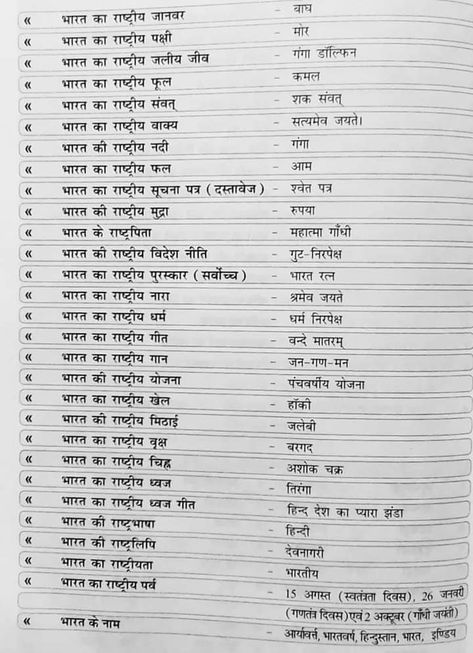 « भारत का राष्ट्रीय जानवर - बाघ
« भारत का राष्ट्रीय पक्षी - मोर
« भारत का राष्ट्रीय जलीय जीव - गंगा डॉल्फिन
« भारत का राष्ट्रीय फूल - कमल
« भारत का राष्ट्रीय संवत् - शक संवत्
« भारत का राष्ट्रीय वाक्य - सत्यमेव जयते।
« भारत की राष्ट्रीय नदी - गंगा
« भारत का राष्ट्रीय फल - आम
« भारत का राष्ट्रीय सूचना पत्र ( दस्तावेज ) - श्वेत पत्र
« भारत की राष्ट्रीय मुद्रा - रुपया
« भारत के राष्ट्रपिता - महात्मा गाँधी
« भारत की राष्ट्रीय विदेश नीति - गुट-निरपेक्ष
« भारत का राष्ट्रीय पुरस्कार ( सर्वोच्च ) - भारत रत्न
« भारत का राष्ट्रीय नारा - श्रमेव जयते
« भारत का राष्ट्रीय धर्म - धर्म निरपेक्ष
« भारत का राष्ट्रीय गीत - वन्दे मातरम्
« भारत का राष्ट्रीय गान - जन-गण-मन
« भारत की राष्ट्रीय योजना - पंचवर्षीय योजना
« भारत का राष्ट्रीय खेल - हॉकी
« भारत की राष्ट्रीय मिठाई - जलेबी
« भारत का राष्ट्रीय वृक्ष - बरगद
« भारत का राष्ट्रीय चिह्न - अशोक चक्र
« भारत का राष्ट्रीय ध्वज - तिरंगा
« भारत का राष्ट्रीय ध्वज गीत - हिन्द देश का प्यारा झंडा
« भारत की राष्ट्रभाषा - हिन्दी
« भारत की राष्ट्रलिपि - देवनागरी
« भारत का राष्ट्रीयता - भारतीय
« भारत का राष्ट्रीय पर्व - 15 अगस्त (स्वतंत्रता दिवस), 26 जनवरी
(गणतंत्र दिवस) एवं 2 अक्टूबर (गाँधी जयंती)
« भारत के नाम - आर्यावर्त्त, भारतवर्ष, हिन्दुस्तान, भारत, इण्डिय